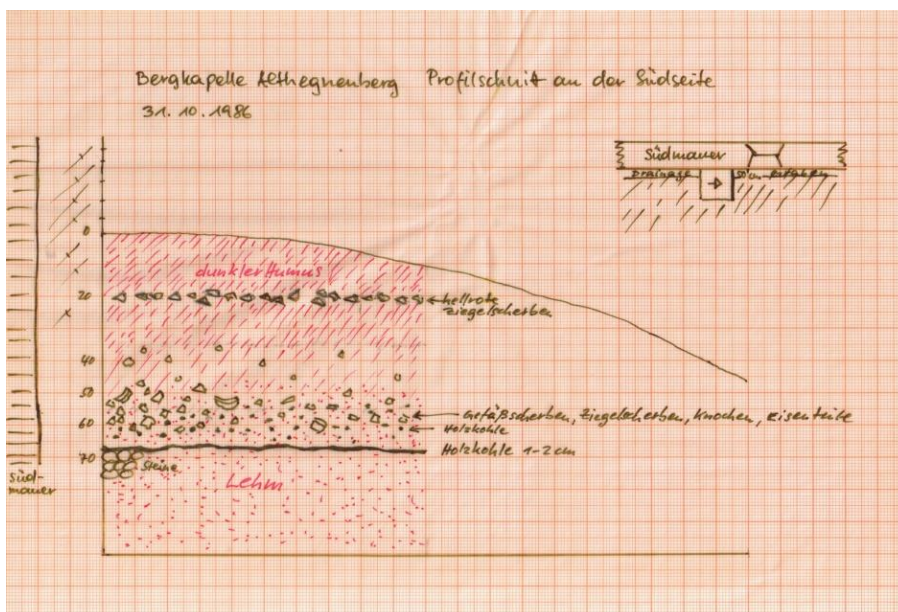 Bergkapelle Althegnenberg Profilschnitt an der Südseite
31. 10. 1986
Südmauer
Drainage
0
dunkler Humus
20
hellrote
Ziegelscherben
40
50
Gefäßscherben, Ziegelscherben, Knochen, Eisenteile
60
Holzkohle
Holzkohle 1-2 cm
70
Steine
Süd-
mauer
Lehm